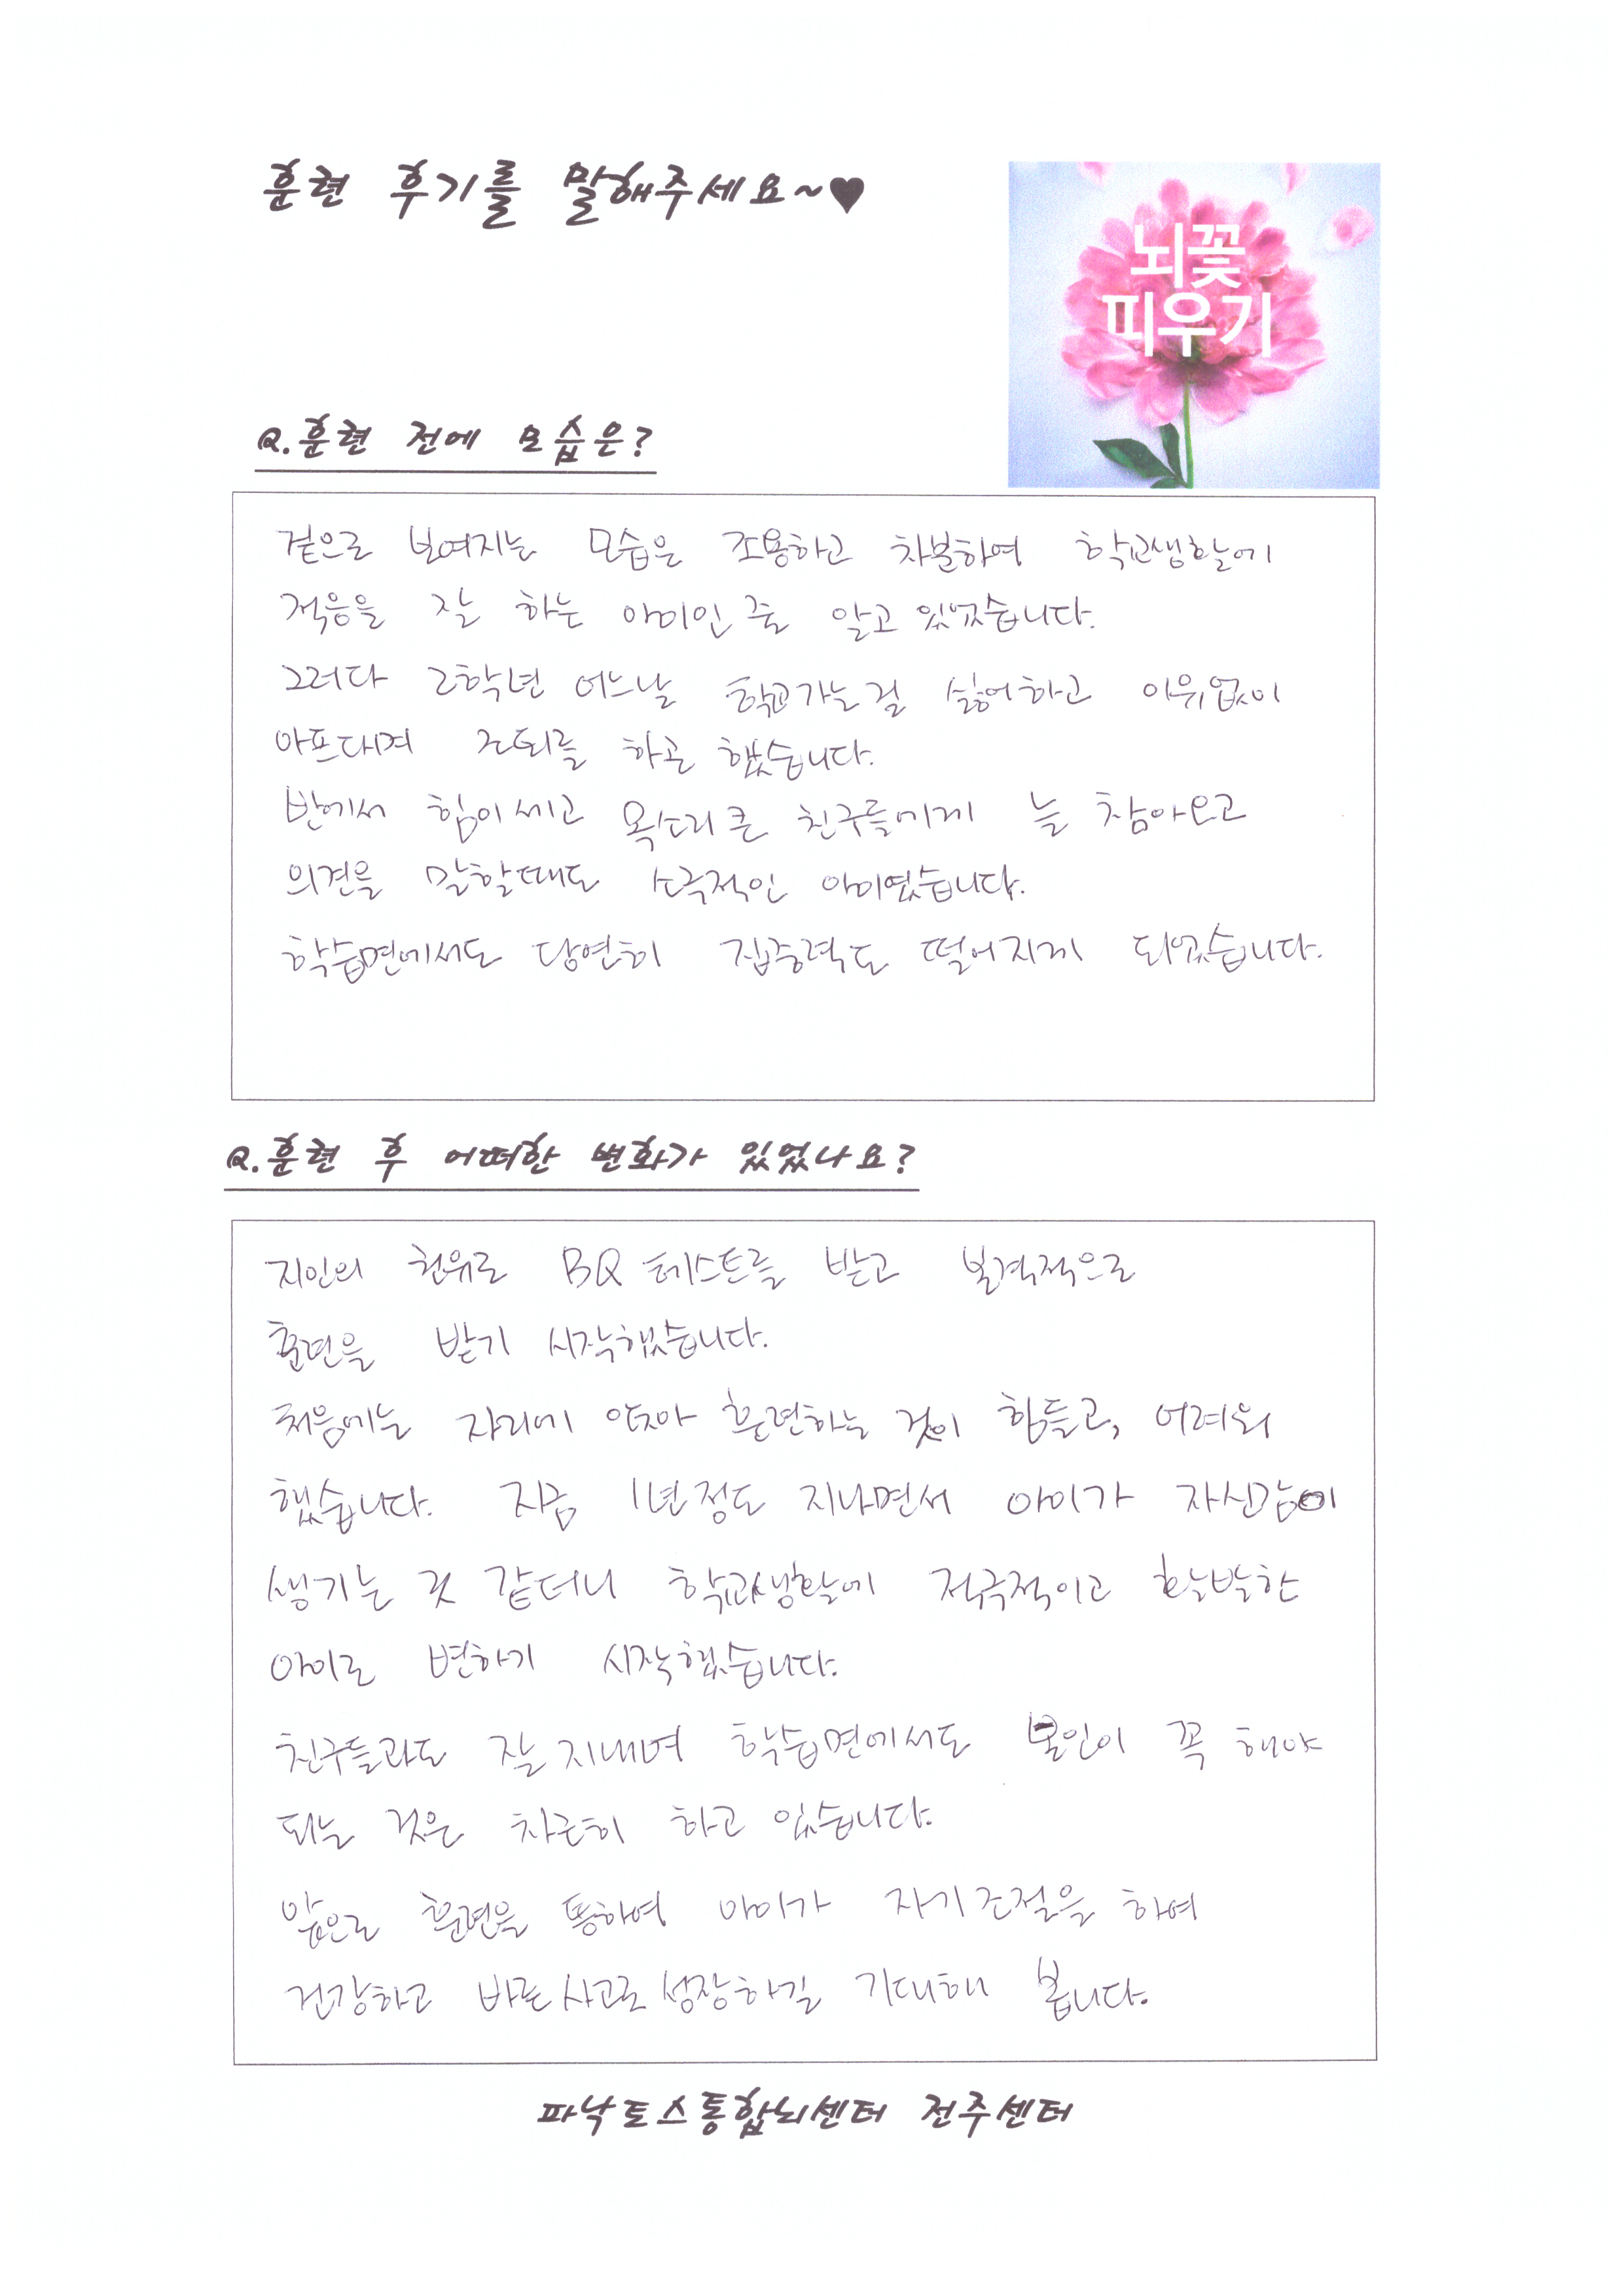 훈련 후기를 말해주세요~♥
뇌꽃
피우기
Q.훈련 전에 모습은?
겉으로 보여지는 모습은 조용하고 차분하여 학교생활에
적응을 잘 하는 아이인 줄 알고 있었습니다.
그러다 2학년 어느날 학교가는걸 싫어하고 이유없이
아프다며 조퇴를 하곤 했습니다.
반에서 힘이세고 목소리 큰 친구들에게 늘 참아오고
의견을 말할때도 소극적인 아이였습니다.
학습면에서도 당연히 집중력도 떨어지게 되었습니다.
Q.훈련 후 어떠한 변화가 있었나요?
지인의 권유로 BQ 테스트를 받고 본격적으로
훈련을 받기 시작했습니다.
처음에는 자리에 앉아 훈련하는 것이 힘들고, 어려워
했습니다. 지금 1년정도 지나면서 아이가 자신감이
생기는 것 같더니 학교생활에 적극적이고 활발한
아이로 변하기 시작했습니다.
친구들과도 잘지내며 학습면에서도 본인이 꼭 해야
되는 것은 차근히 하고 있습니다.
앞으로 훈련을 통하여 아이가 자기조절을 하여
건강하고 바른사고로 성장하길 기대해 봅니다.
파낙토스통합뇌센터 전주센터